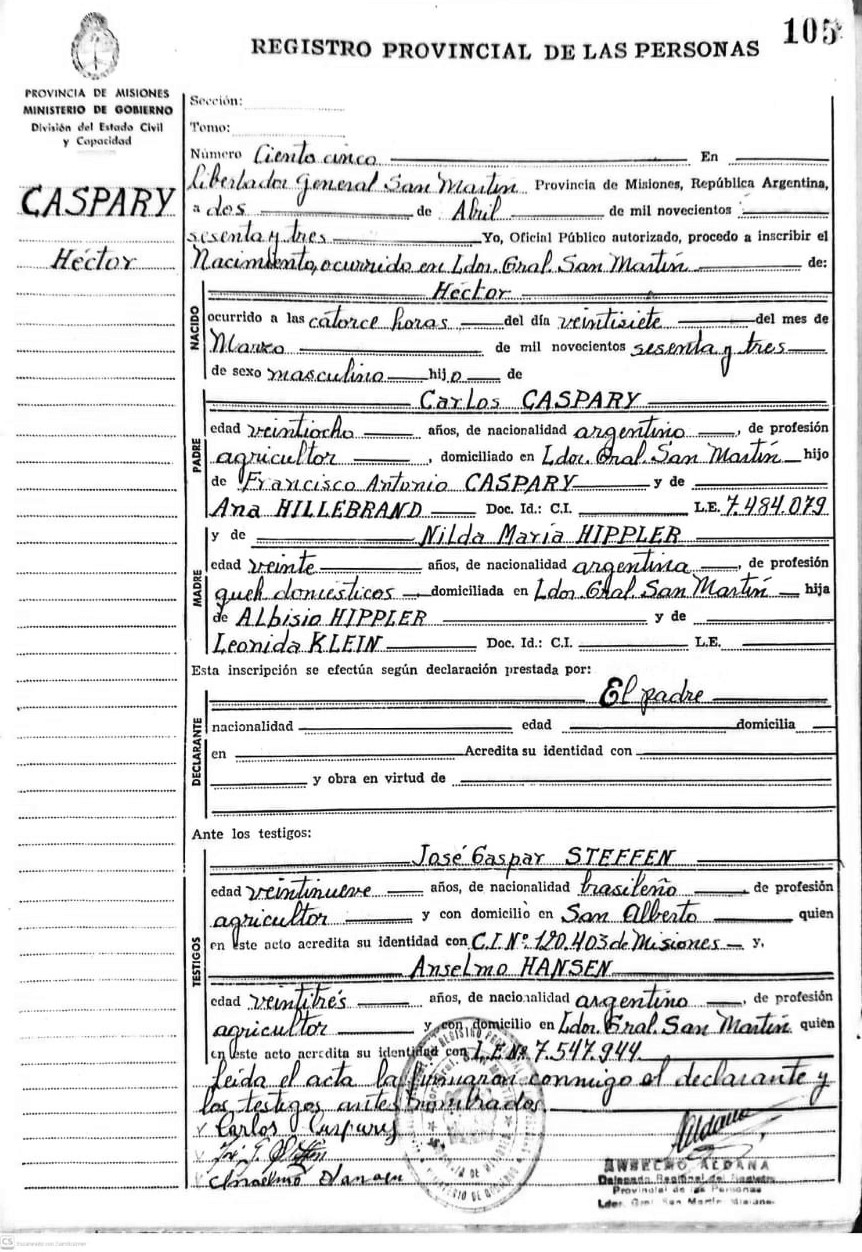 105
REGISTRO PROVINCIAL DE LAS PERSONAS
PROVINCIA DE MISIONES
MINISTERIO DE GOBIERNO
División del Estado Civil
y Capacidad
CASPARY
Héctor
Sección:
Tomo:
Número Ciento cinco En
Libertador General San Martín Provincia de Misiones, República Argentina,
a dos de Abril de mil novecientos
sesenta y tres Yo, Oficial Público autorizado, procedo a inscribir el
Nacimiento, ocurrido en Ldor. Gral. San Martín de:
NACIDO
Héctor
ocurrido a las catorce horas del día veintisiete del mes de
Marzo de mil novecientos sesenta y tres
de sexo masculino hijo de
PADRE
Carlos CASPARY
edad veintiocho años, de nacionalidad argentino, de profesión
agricultor, domiciliado en Ldor. Gral. San Martín hijo
de Francisco Antonio CASPARY y de
Ana HILLEBRAND Doc. Id.: C.I. L.E. 7.484.079
MADRE
y de Nilda María HIPPLER
edad veinte años, de nacionalidad argentina, de profesión
queh. domésticos domiciliada en Ldor. Gral. San Martín hija
de Albisio HIPPLER y de
Leonida KLEIN Doc. Id.: C.I. L.E.
Esta inscripción se efectúa según declaración prestada por:
DECLARANTE
El padre
nacionalidad edad domicilia
en Acredita su identidad con
y obra en virtud de
Ante los testigos:
TESTIGOS
José Gaspar STEFFEN
edad veintinueve años, de nacionalidad brasileño, de profesión
agricultor y con domicilio en San Alberto quien
en este acto acredita su identidad con C.I. Nº 120.403 de Misiones y,
Anselmo HANSEN
edad veintitrés años, de nacionalidad argentino, de profesión
agricultor y con domicilio en Ldor. Gral. San Martín quien
en este acto acredita su identidad con L.E. Nº 7.547.944.
Leída el acta la firmaron conmigo el declarante y
los testigos antes nombrados.
Carlos Caspary
Anselmo Hansen
Aldana
ANSELMO ALDANA
Delegado Regional del Registro
Provincial de las Personas
Ldor. Gral. San Martín Misiones
CS